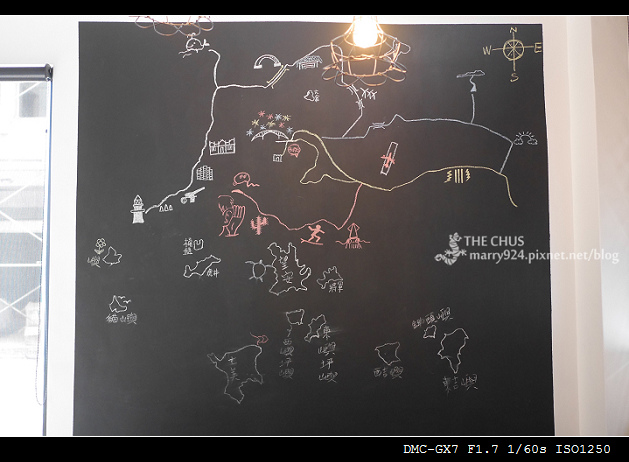 N
W E
S
THE CHUS
marry924.pixnet.net/blog
嶼
桶盤
虎井
望安
將軍
貓嶼
七美
西嶼坪嶼
東嶼坪嶼
西吉嶼
鋤頭嶼
東吉嶼
DMC-GX7 F1.7 1/60s ISO1250